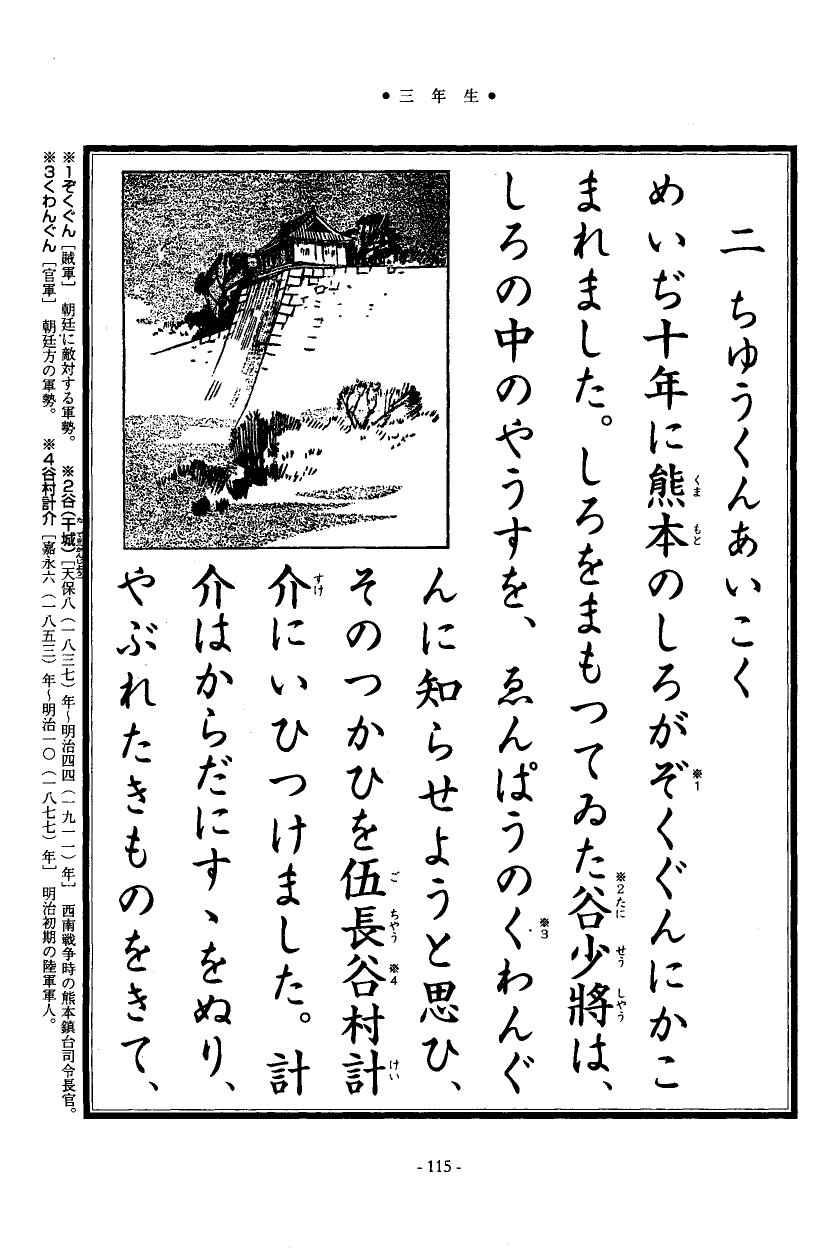 ●三年生●
二 ちゆうくんあいこく
めいぢ十年に熊本のしろがぞくぐんにかこ
まれました。しろをまもつてゐた谷少將は、
しろの中のやうすを、ゑんぱうのくわんぐ
んに知らせようと思ひ、
そのつかひを伍長谷村計
介にいひつけました。計
介はからだにすゝをぬり、
やぶれたきものをきて、
くま もと
※1
※2たに せう しやう
※3
ご ちやう ※4 けい
すけ
※1ぞくぐん［賊軍］ 朝廷に敵対する軍勢。 ※2谷（干城）［天保八（一八三七）年～明治四四（一九一一）年］ 西南戦争時の熊本鎮台司令長官。
※3くわんぐん［官軍］ 朝廷方の軍勢。 ※4谷村計介［嘉永六（一八五三）年～明治一〇（一八七七）年］ 明治初期の陸軍軍人。
- 115 -